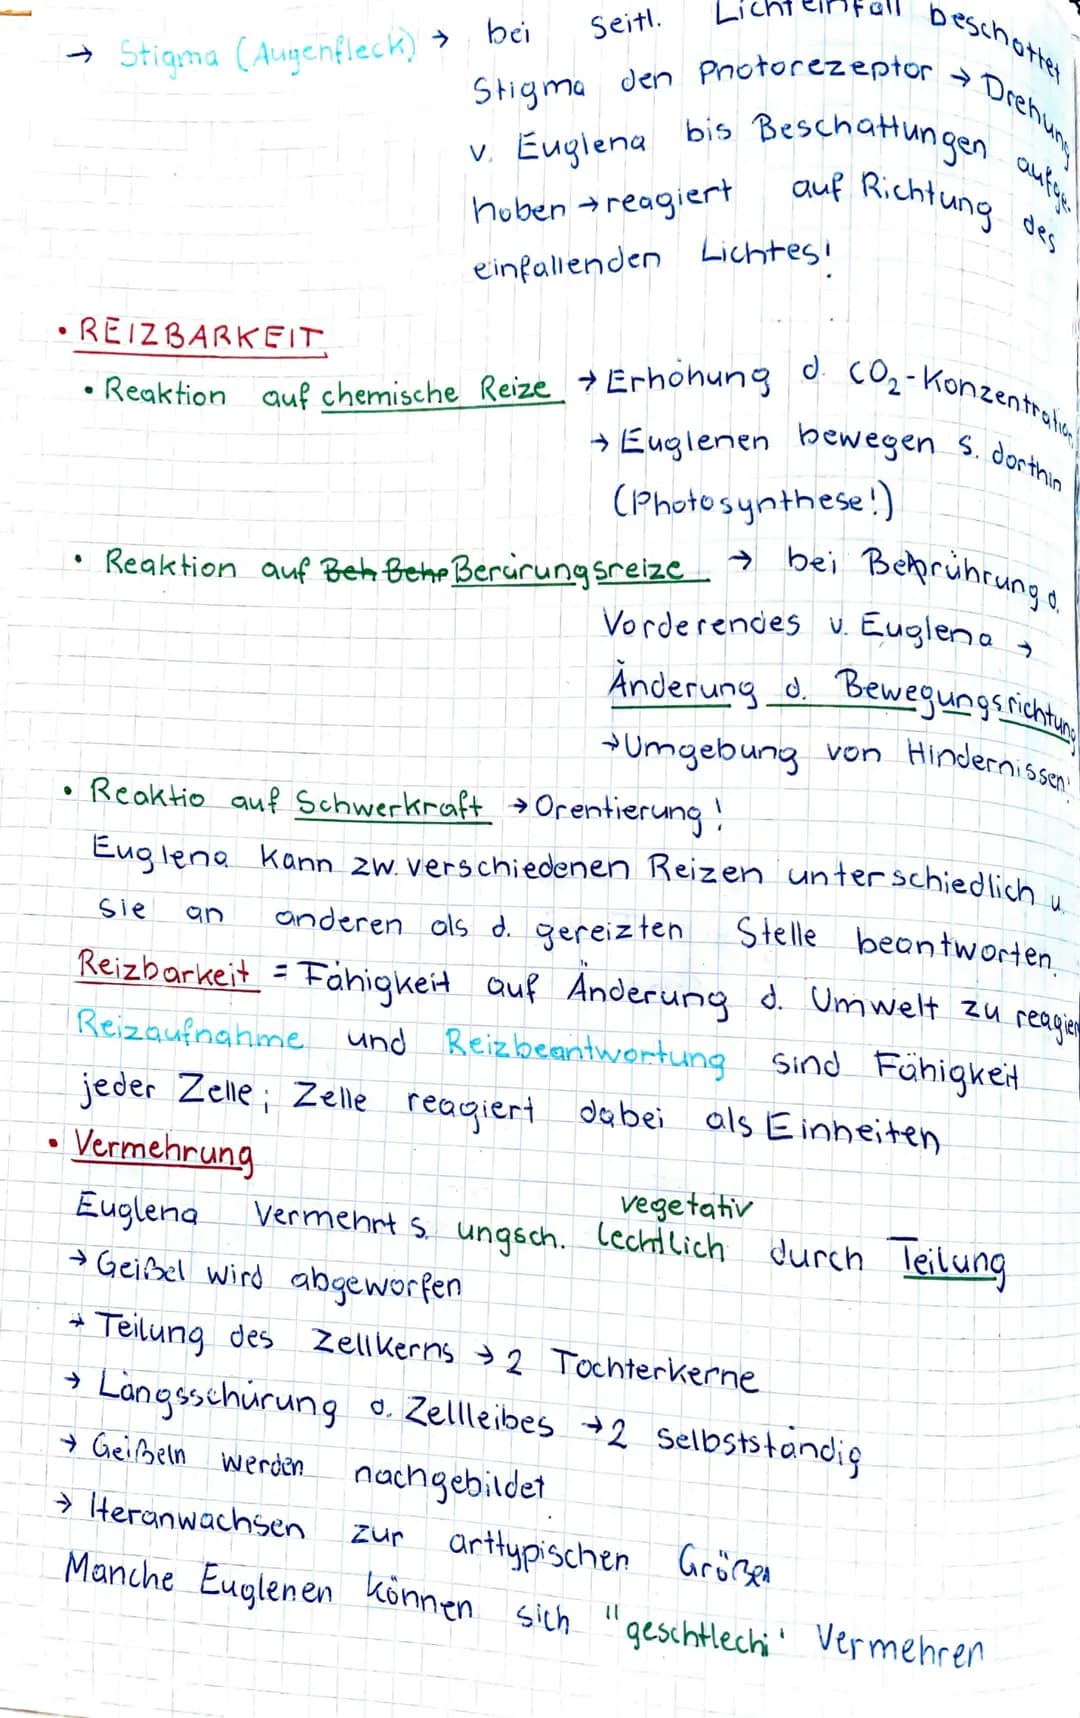 → Stigma (Augenfleck) → bei seitl. Lichteinfall beschattet
Stigma den Photorezeptor → Drehung
v. Euglena bis Beschattungen aufge-
hoben → reagiert auf Richtung des
einfallenden Lichtes!
• REIZBARKEIT
• Reaktion auf chemische Reize → Erhöhung d. CO₂-Konzentration
→ Euglenen bewegen s. dorthin
(Photosynthese!)
• Reaktion auf Beh Behe Berürungsreize → bei Berührung d.
Vorderendes v. Euglena →
Änderung d. Bewegungsrichtung
→ Umgebung von Hindernissen!
• Reaktio auf Schwerkraft → Orentierung!
Euglena kann zw. verschiedenen Reizen unterschiedlich u.
sie an anderen als d. gereizten Stelle beantworten.
Reizbarkeit = Fähigkeit auf Änderung d. Umwelt zu reagier
Reizaufnahme und Reizbeantwortung sind Fähigkeit
jeder Zelle; Zelle reagiert dabei als Einheiten
• Vermehrung
vegetativ
Euglena Vermehrt s. ungsch. lechtlich durch Teilung
→ Geißel wird abgeworfen
→ Teilung des Zellkerns → 2 Tochterkerne
→ Längsschürung d. Zellleibes → 2 selbstständig
→ Geißeln werden nachgebildet
→ Heranwachsen zur arttypischen Größen
Manche Euglenen können sich "geschtlechi" Vermehren